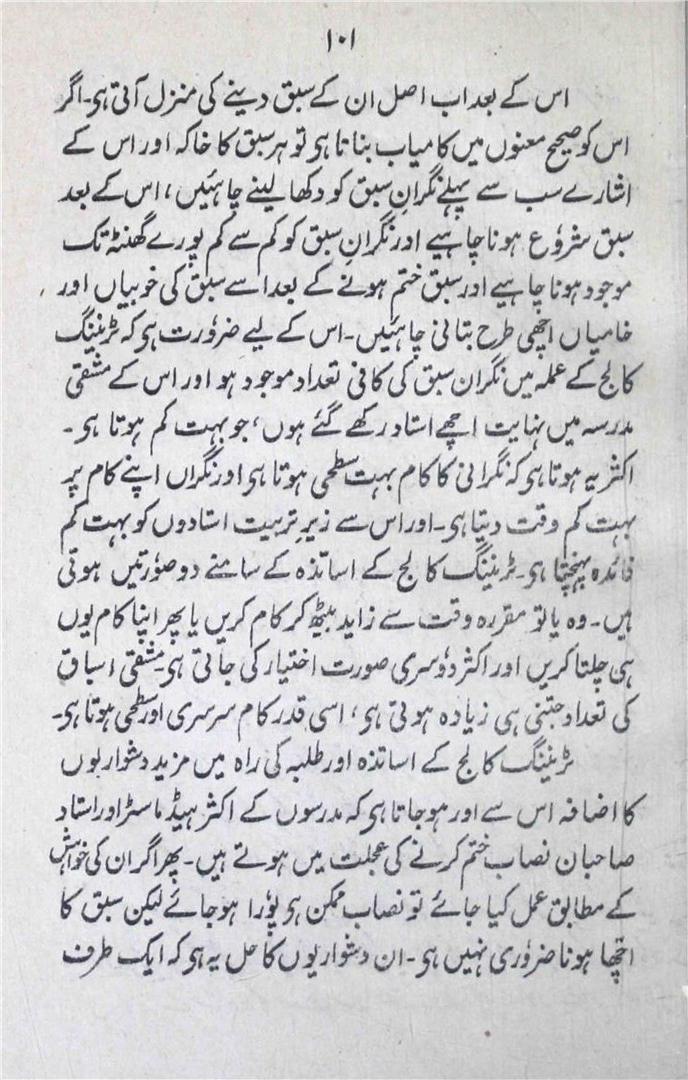 ۱۰۱
اس کے بعد اب اصل ان کے سبق دینے کی منزل آتی ہی۔ اگر
اس کو صحیح معنوں میں کامیاب بنانا ہی تو ہر سبق کا خاکہ اور اس کے
اشارے سب سے پہلے نگرانِ سبق کو دکھا لینے چاہئیں، اس کے بعد
سبق شروٗع ہونا چاہیے اور نگرانِ سبق کو کم سے کم پورے گھنٹہ تک
موجود ہونا چاہیے اور سبق ختم ہونے کے بعد اسے سبق کی خوبیاں اور
خامیاں اچھی طرح بتانی چاہئیں۔ اس کے لیے ضرورت ہی کہ ٹریننگ
کالج کے عملہ میں نگران سبق کی کافی تعداد موجود ہو اور اس کے مشقی
مدرسہ میں نہایت اچھے استاد رکھے گئے ہوں، جو بہت کم ہوتا ہی۔
اکثر یہ ہوتا ہی کہ نگرانی کا کام بہت سطحی ہوتا ہی اور نگراں اپنے کام پر
بہت کم وقت دیتا ہی۔ اور اس سے زیرِ تربیت استادوں کو بہت کم
فائدہ پہنچتا ہی۔ ٹریننگ کالج کے اساتذہ کے سامنے دو صوٗرتیں ہوتی
ہیں۔ وہ یا تو مقررہ وقت سے زاید بیٹھ کر کام کریں یا پھر اپنا کام یوں
ہی چلتا کریں اور اکثر دوٗسری صورت اختیار کی جاتی ہی۔ مشقی اسباق
کی تعداد جتنی ہی زیادہ ہوتی ہی، اسی قدر کام سرسری اور سطحی ہوتا ہی۔
ٹریننگ کالج کے اساتذہ اور طلبہ کی راہ میں مزید دشواریوں
کا اضافہ اس سے اور ہو جاتا ہی کہ مدرسوں کے اکثر ہیڈ ماسٹر اور استاد
صاحبان نصاب ختم کرنے کی عجلت میں ہوتے ہیں۔ پھر اگر ان کی خواہش
کے مطابق عمل کیا جائے تو نصاب ممکن ہی پوٗرا ہو جائے لیکن سبق کا
اچھا ہونا ضروٗری نہیں ہی۔ ان دشواریوں کا حل یہ ہی کہ ایک طرف